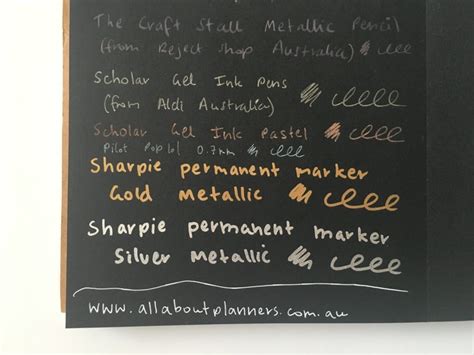 The Craft Stall Metallic Pencil
(from Reject Shop Australia)
Scholar Gel Ink Pens
(from Aldi Australia)
Scholar Gel Ink Pastel
Pilot Pop lol 0.7mm
Sharpie permanent marker
Gold metallic
Sharpie permanent marker
Silver metallic
www.allaboutplanners.com.au